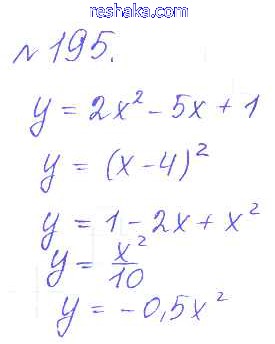 reshaka.com
№195.
y = 2x² - 5x + 1
y = (x - 4)²
y = 1 - 2x + x²
y = x²/10
y = -0,5x²